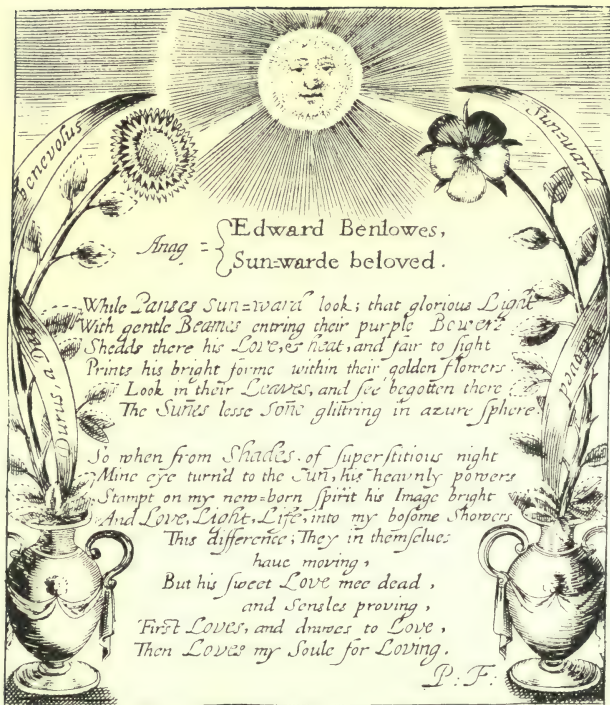 benevolus
Sun=ward
Anag = Edward Benlowes,
Sun=warde beloved.
While Panses Sun=ward look; that glorious Light
With gentle Beames entring their purple Bowers
Shedds there his Love, & heat, and fair to sight
Prints his bright forme within their golden flowers.
Look in their Leaves, and see begotten there
The Sunes lesse Sone glittring in azure sphere.
Durus, a Deo
Beloved
So when from Shades of superstitious night
Mine eye turnd to the Sun, his heavnly powers
Stampt on my new=born spirit his Image bright
And Love, Light, Life, into my bosome Showers
This difference; They in themselues
haue moving,
But his sweet Love mee dead,
and Sensles proving,
First Loves, and drawes to Love,
Then Loves my Soule for Loving.
P: F: